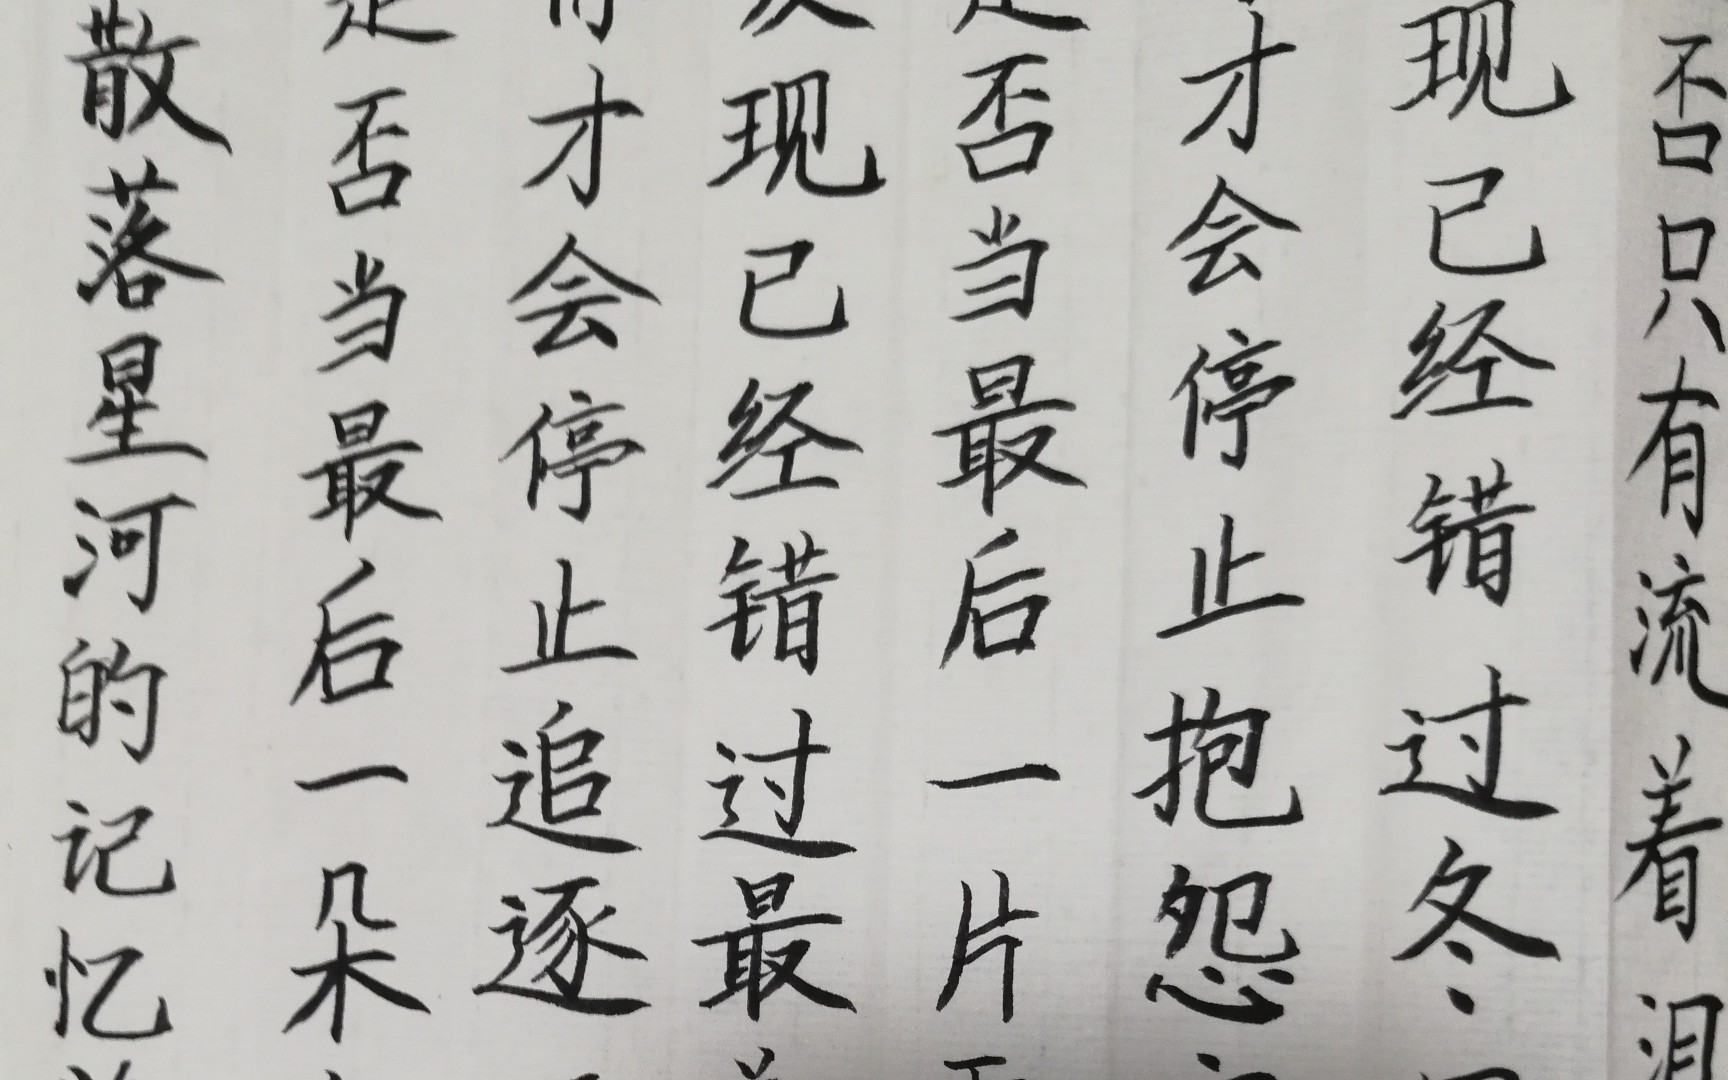 否只有流着泪
现已经错过冬
才会停止抱怨
是否当最后一片
发现已经错过最
才会停止追逐
是否当最后一朵
散落星河的记忆